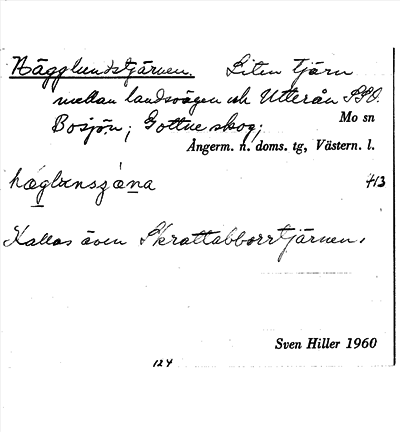 Hägglundstjärnen. Liten tjärn
mellan landsvägen och Utterån SSO.
Bosjön; Gottne skog; Mo sn
Ångerm. n. doms. tg, Västern. l.
hæglɯnszæna 413
Kallas även Skrattabborrtjärnen.
Sven Hiller 1960
124